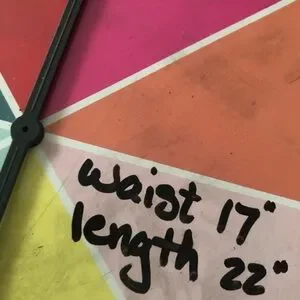 waist 17"
length 22"